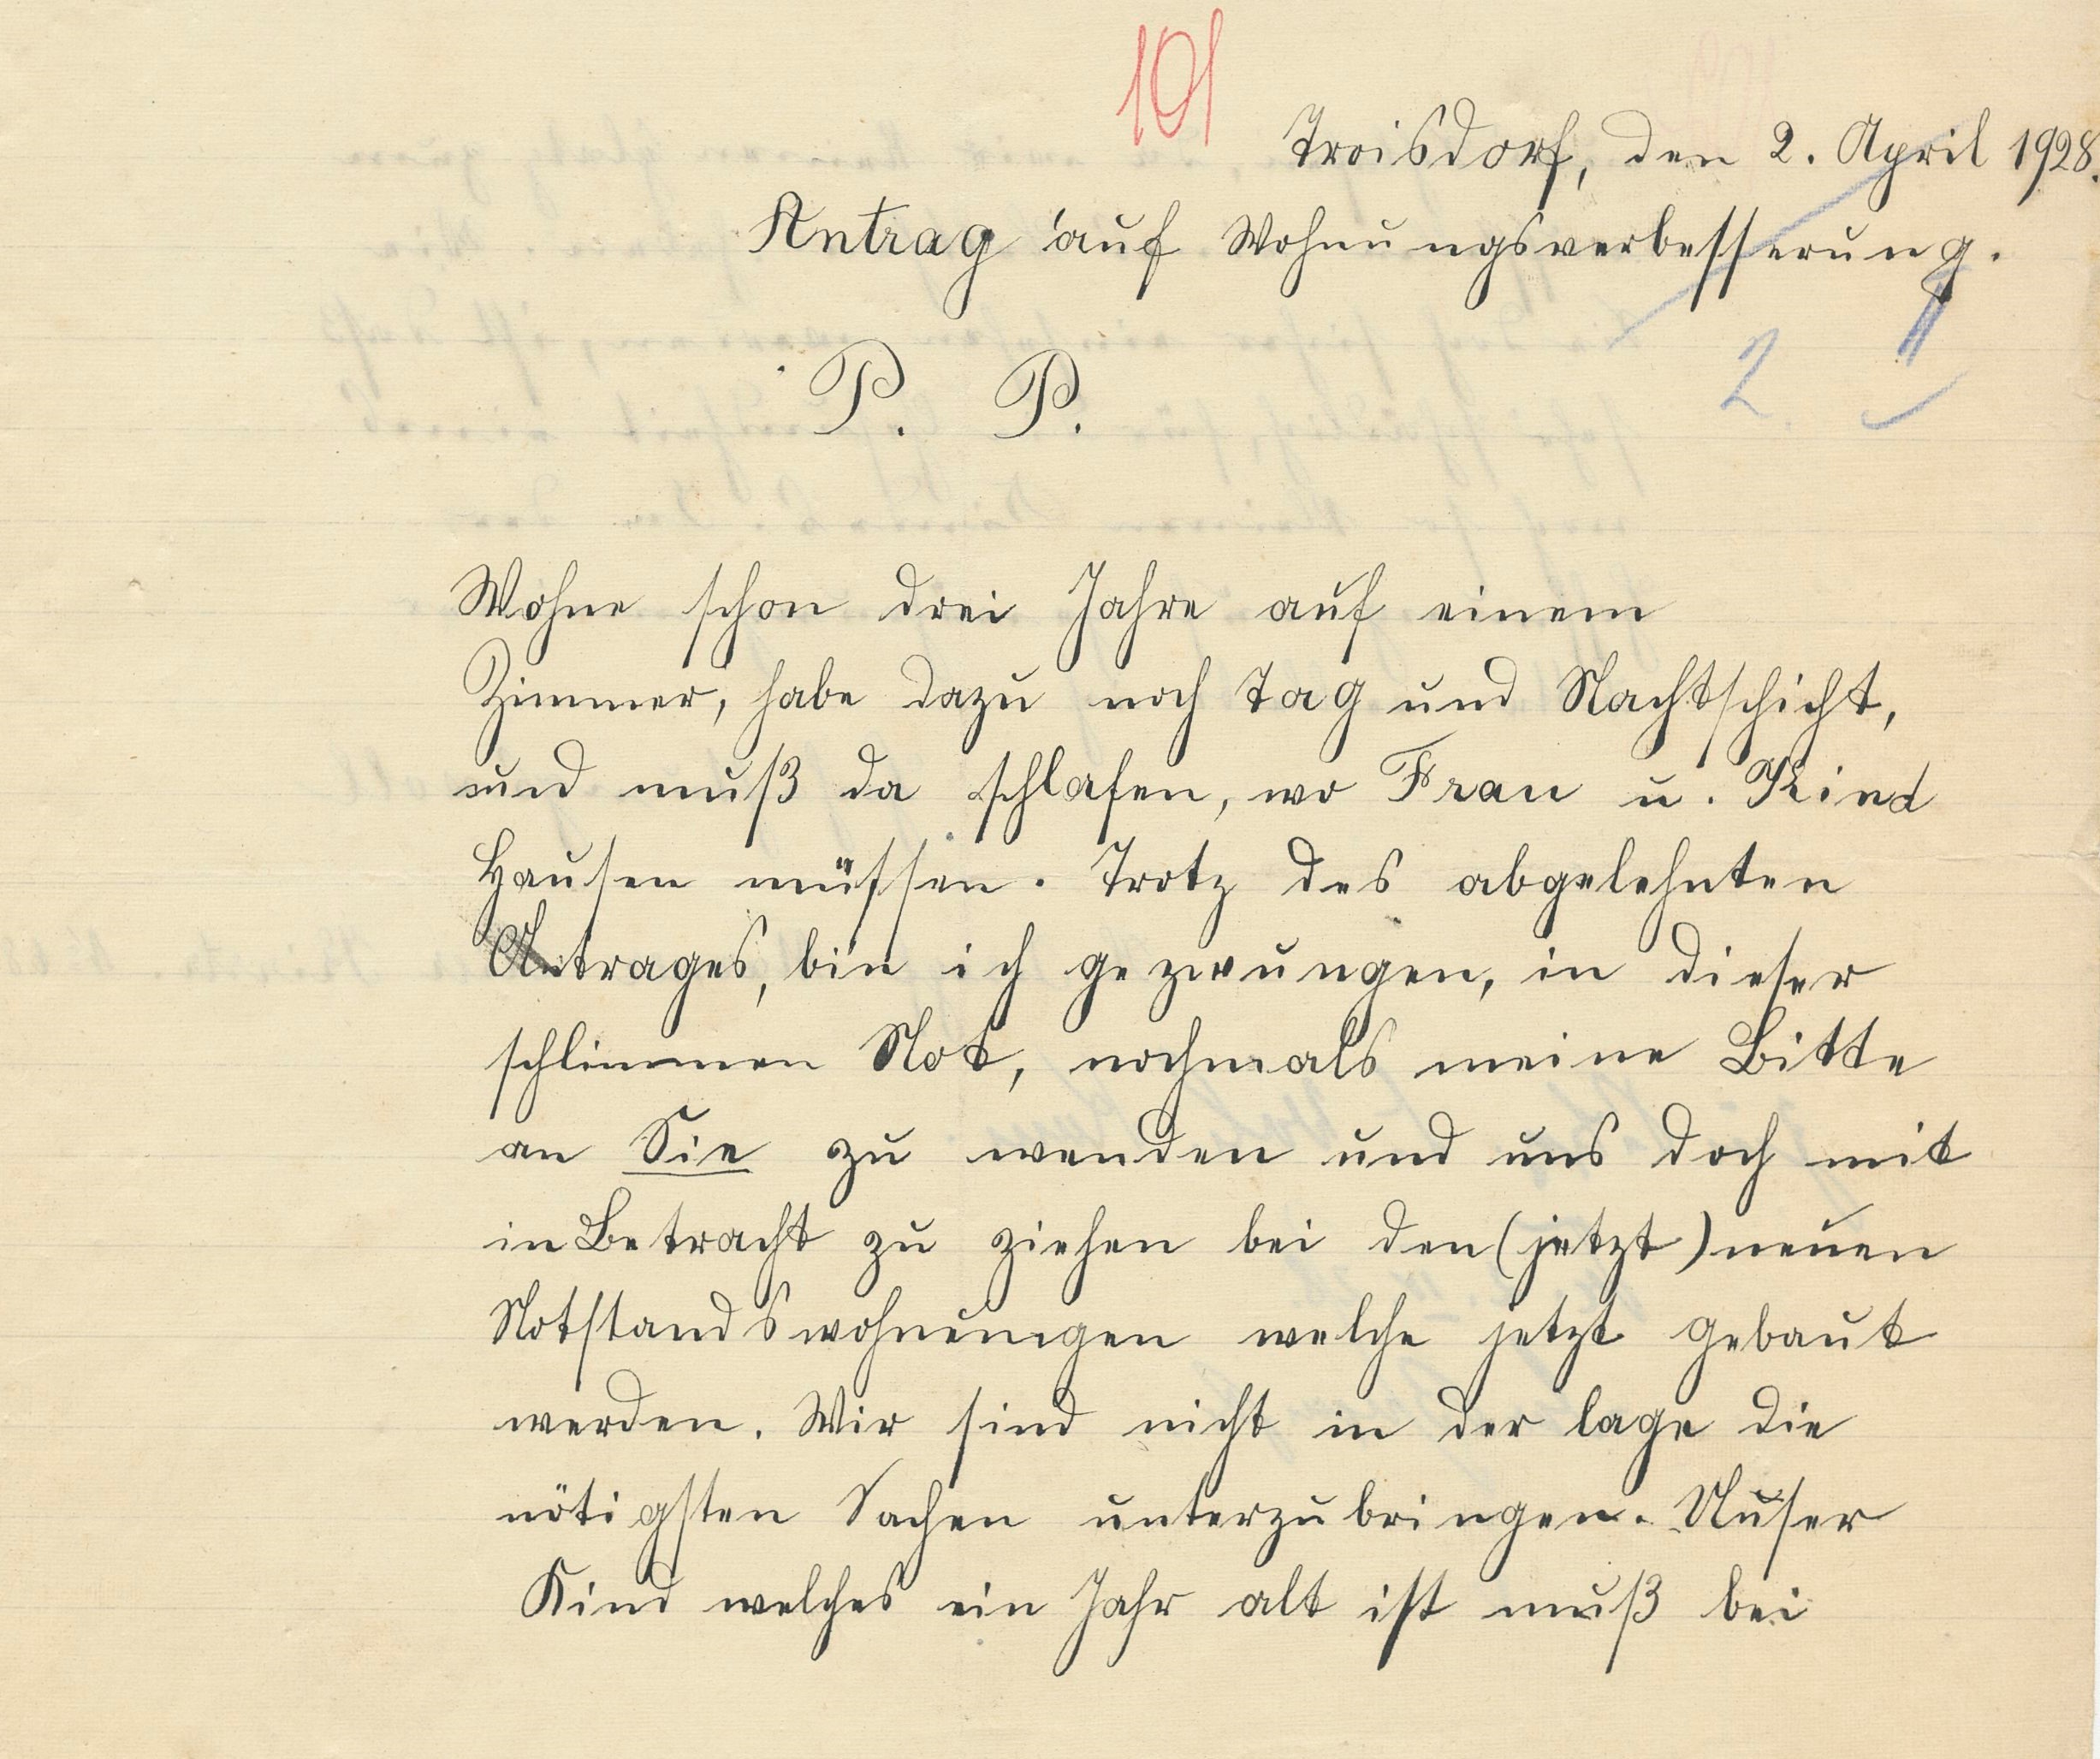 101
Troisdorf, den 2. April 1928.
Antrag auf Wohnungsverbesserung.
2
P. P.
Wohne schon drei Jahre auf einem
Zimmer, habe dazu noch Tag und Nachtschicht,
und muß da schlafen, wo Frau u. Kind
Hausen müssen. Trotz des abgelehnten
Antrages, bin ich gezwungen, in dieser
schlimmen Not, nochmals meine Bitte
an Sie zu wenden und uns doch mit
in Betracht zu ziehen bei den (jetzt) neuen
Notstandswohnungen welche jetzt gebaut
werden. Wir sind nicht in der lage die
nötigsten Sachen unterzubringen. Unser
Kind welches ein Jahr alt ist muß bei